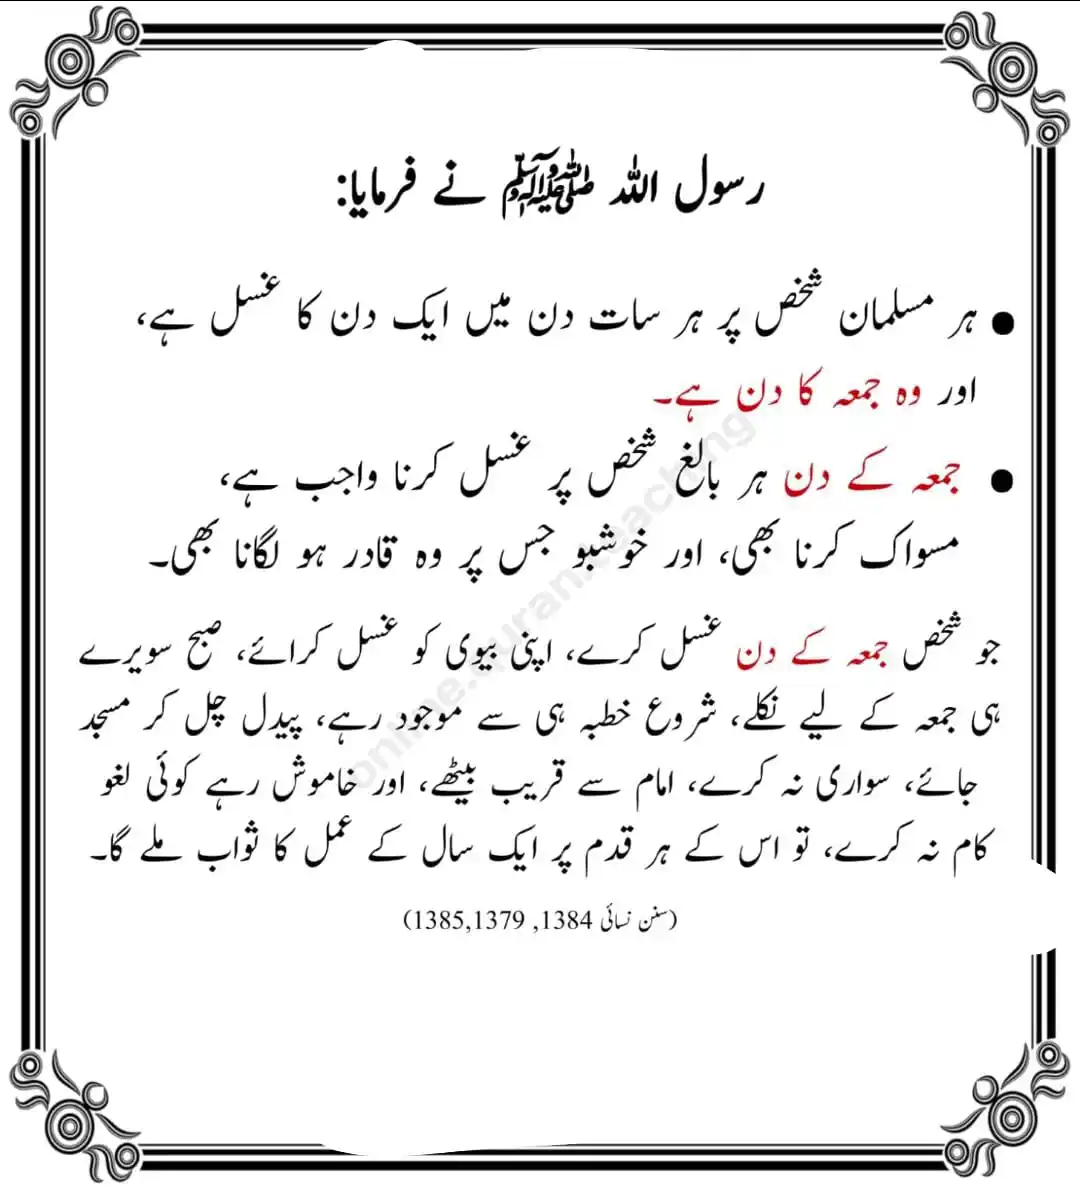 رسول اللہ ﷺ نے فرمایا:
● ہر مسلمان شخص پر ہر سات دن میں ایک دن کا غسل ہے،
اور وہ جمعہ کا دن ہے۔
● جمعہ کے دن ہر بالغ شخص پر غسل کرنا واجب ہے،
مسواک کرنا بھی، اور خوشبو جس پر وہ قادر ہو لگانا بھی۔
جو شخص جمعہ کے دن غسل کرے، اپنی بیوی کو غسل کرائے، صبح سویرے
ہی جمعہ کے لیے نکلے، شروع خطبہ ہی سے موجود رہے، پیدل چل کر مسجد
جائے، سواری نہ کرے، امام سے قریب بیٹھے، اور خاموش رہے کوئی لغو
کام نہ کرے، تو اس کے ہر قدم پر ایک سال کے عمل کا ثواب ملے گا۔
(سنن نسائی 1384, 1385,1379)
online.quran.teaching